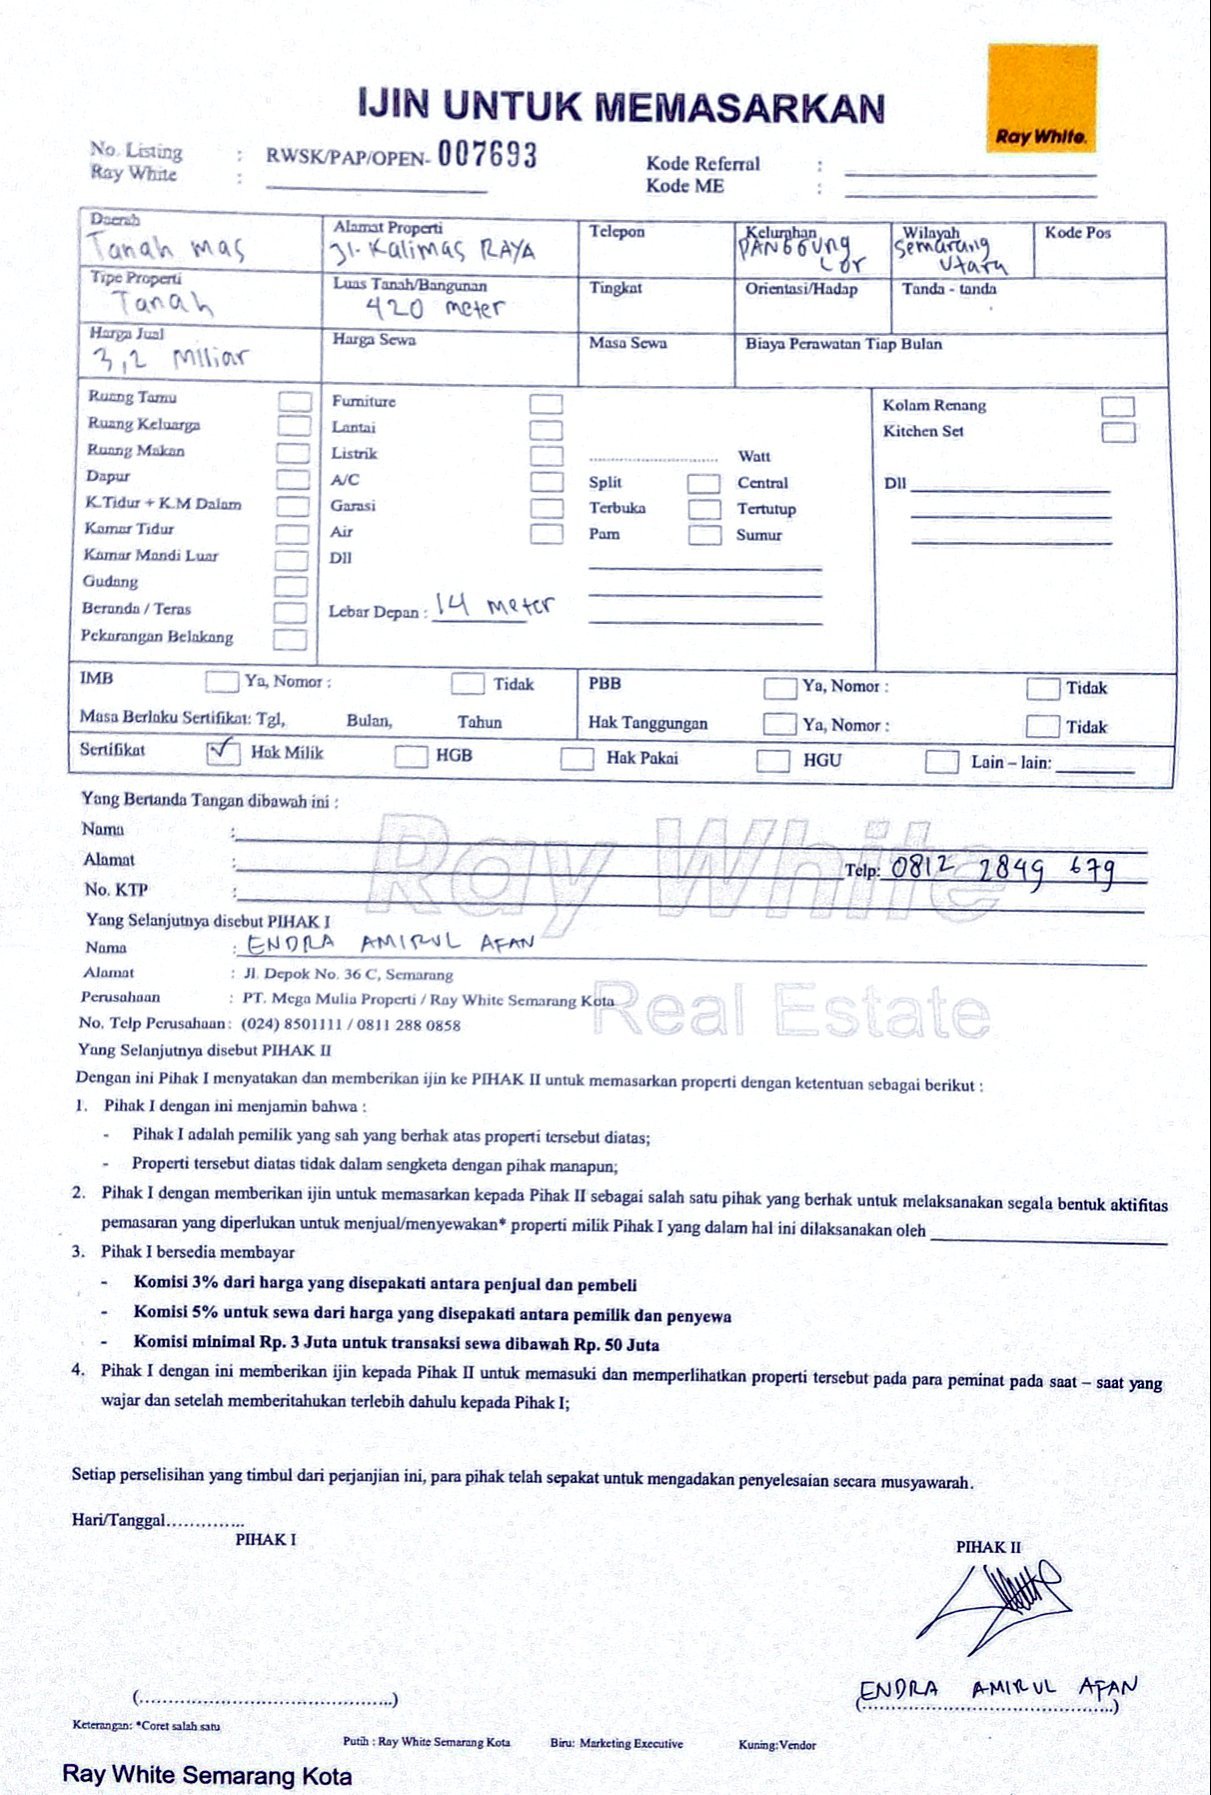 Ray White
IJIN UNTUK MEMASARKAN
No. Listing : RWSK/PAP/OPEN- 007693
Ray White :
Kode Referral :
Kode ME :
Daerah Alamat Properti Telepon Kelurahan Wilayah Kode Pos
Tanah Mas Jl. Kalimas RAYA PANGGUNG Lor Semarang Utara
Tipe Properti Luas Tanah/Bangunan Tingkat Orientasi/Hadap Tanda - tanda
Tanah 420 meter
Harga Jual Harga Sewa Masa Sewa Biaya Perawatan Tiap Bulan
3,2 Miliar
Ruang Tamu Furniture Kolam Renang
Ruang Keluarga Lantai Kitchen Set
Ruang Makan Listrik .............................. Watt
Dapur A/C Split Central Dll
K.Tidur + K.M Dalam Garasi Terbuka Tertutup
Kamar Tidur Air Pam Sumur
Kamar Mandi Luar Dll
Gudang
Beranda / Teras Lebar Depan : 14 meter
Pekarangan Belakang
IMB Ya, Nomor : Tidak PBB Ya, Nomor : Tidak
Masa Berlaku Sertifikat: Tgl, Bulan, Tahun Hak Tanggungan Ya, Nomor : Tidak
Sertifikat ✓ Hak Milik HGB Hak Pakai HGU Lain – lain:
Yang Bertanda Tangan dibawah ini :
Nama :
Alamat : Telp: 0812 2849 679
No. KTP :
Yang Selanjutnya disebut PIHAK I
Nama : ENDRA AMIRUL AFAN
Alamat : Jl. Depok No. 36 C, Semarang
Perusahaan : PT. Mega Mulia Properti / Ray White Semarang Kota
No. Telp Perusahaan : (024) 8501111 / 0811 288 0858
Yang Selanjutnya disebut PIHAK II
Ray White
Real Estate
Dengan ini Pihak I menyatakan dan memberikan ijin ke PIHAK II untuk memasarkan properti dengan ketentuan sebagai berikut :
1. Pihak I dengan ini menjamin bahwa :
- Pihak I adalah pemilik yang sah yang berhak atas properti tersebut diatas;
- Properti tersebut diatas tidak dalam sengketa dengan pihak manapun;
2. Pihak I dengan memberikan ijin untuk memasarkan kepada Pihak II sebagai salah satu pihak yang berhak untuk melaksanakan segala bentuk aktifitas
pemasaran yang diperlukan untuk menjual/menyewakan* properti milik Pihak I yang dalam hal ini dilaksanakan oleh
3. Pihak I bersedia membayar
- Komisi 3% dari harga yang disepakati antara penjual dan pembeli
- Komisi 5% untuk sewa dari harga yang disepakati antara pemilik dan penyewa
- Komisi minimal Rp. 3 Juta untuk transaksi sewa dibawah Rp. 50 Juta
4. Pihak I dengan ini memberikan ijin kepada Pihak II untuk memasuki dan memperlihatkan properti tersebut pada para peminat pada saat – saat yang
wajar dan setelah memberitahukan terlebih dahulu kepada Pihak I;
Setiap perselisihan yang timbul dari perjanjian ini, para pihak telah sepakat untuk mengadakan penyelesaian secara musyawarah.
Hari/Tanggal..............
PIHAK I PIHAK II
ENDRA AMIRUL AFAN
(............................................) (............................................)
Keterangan: *Coret salah satu
Putih : Ray White Semarang Kota Biru: Marketing Executive Kuning:Vendor
Ray White Semarang Kota